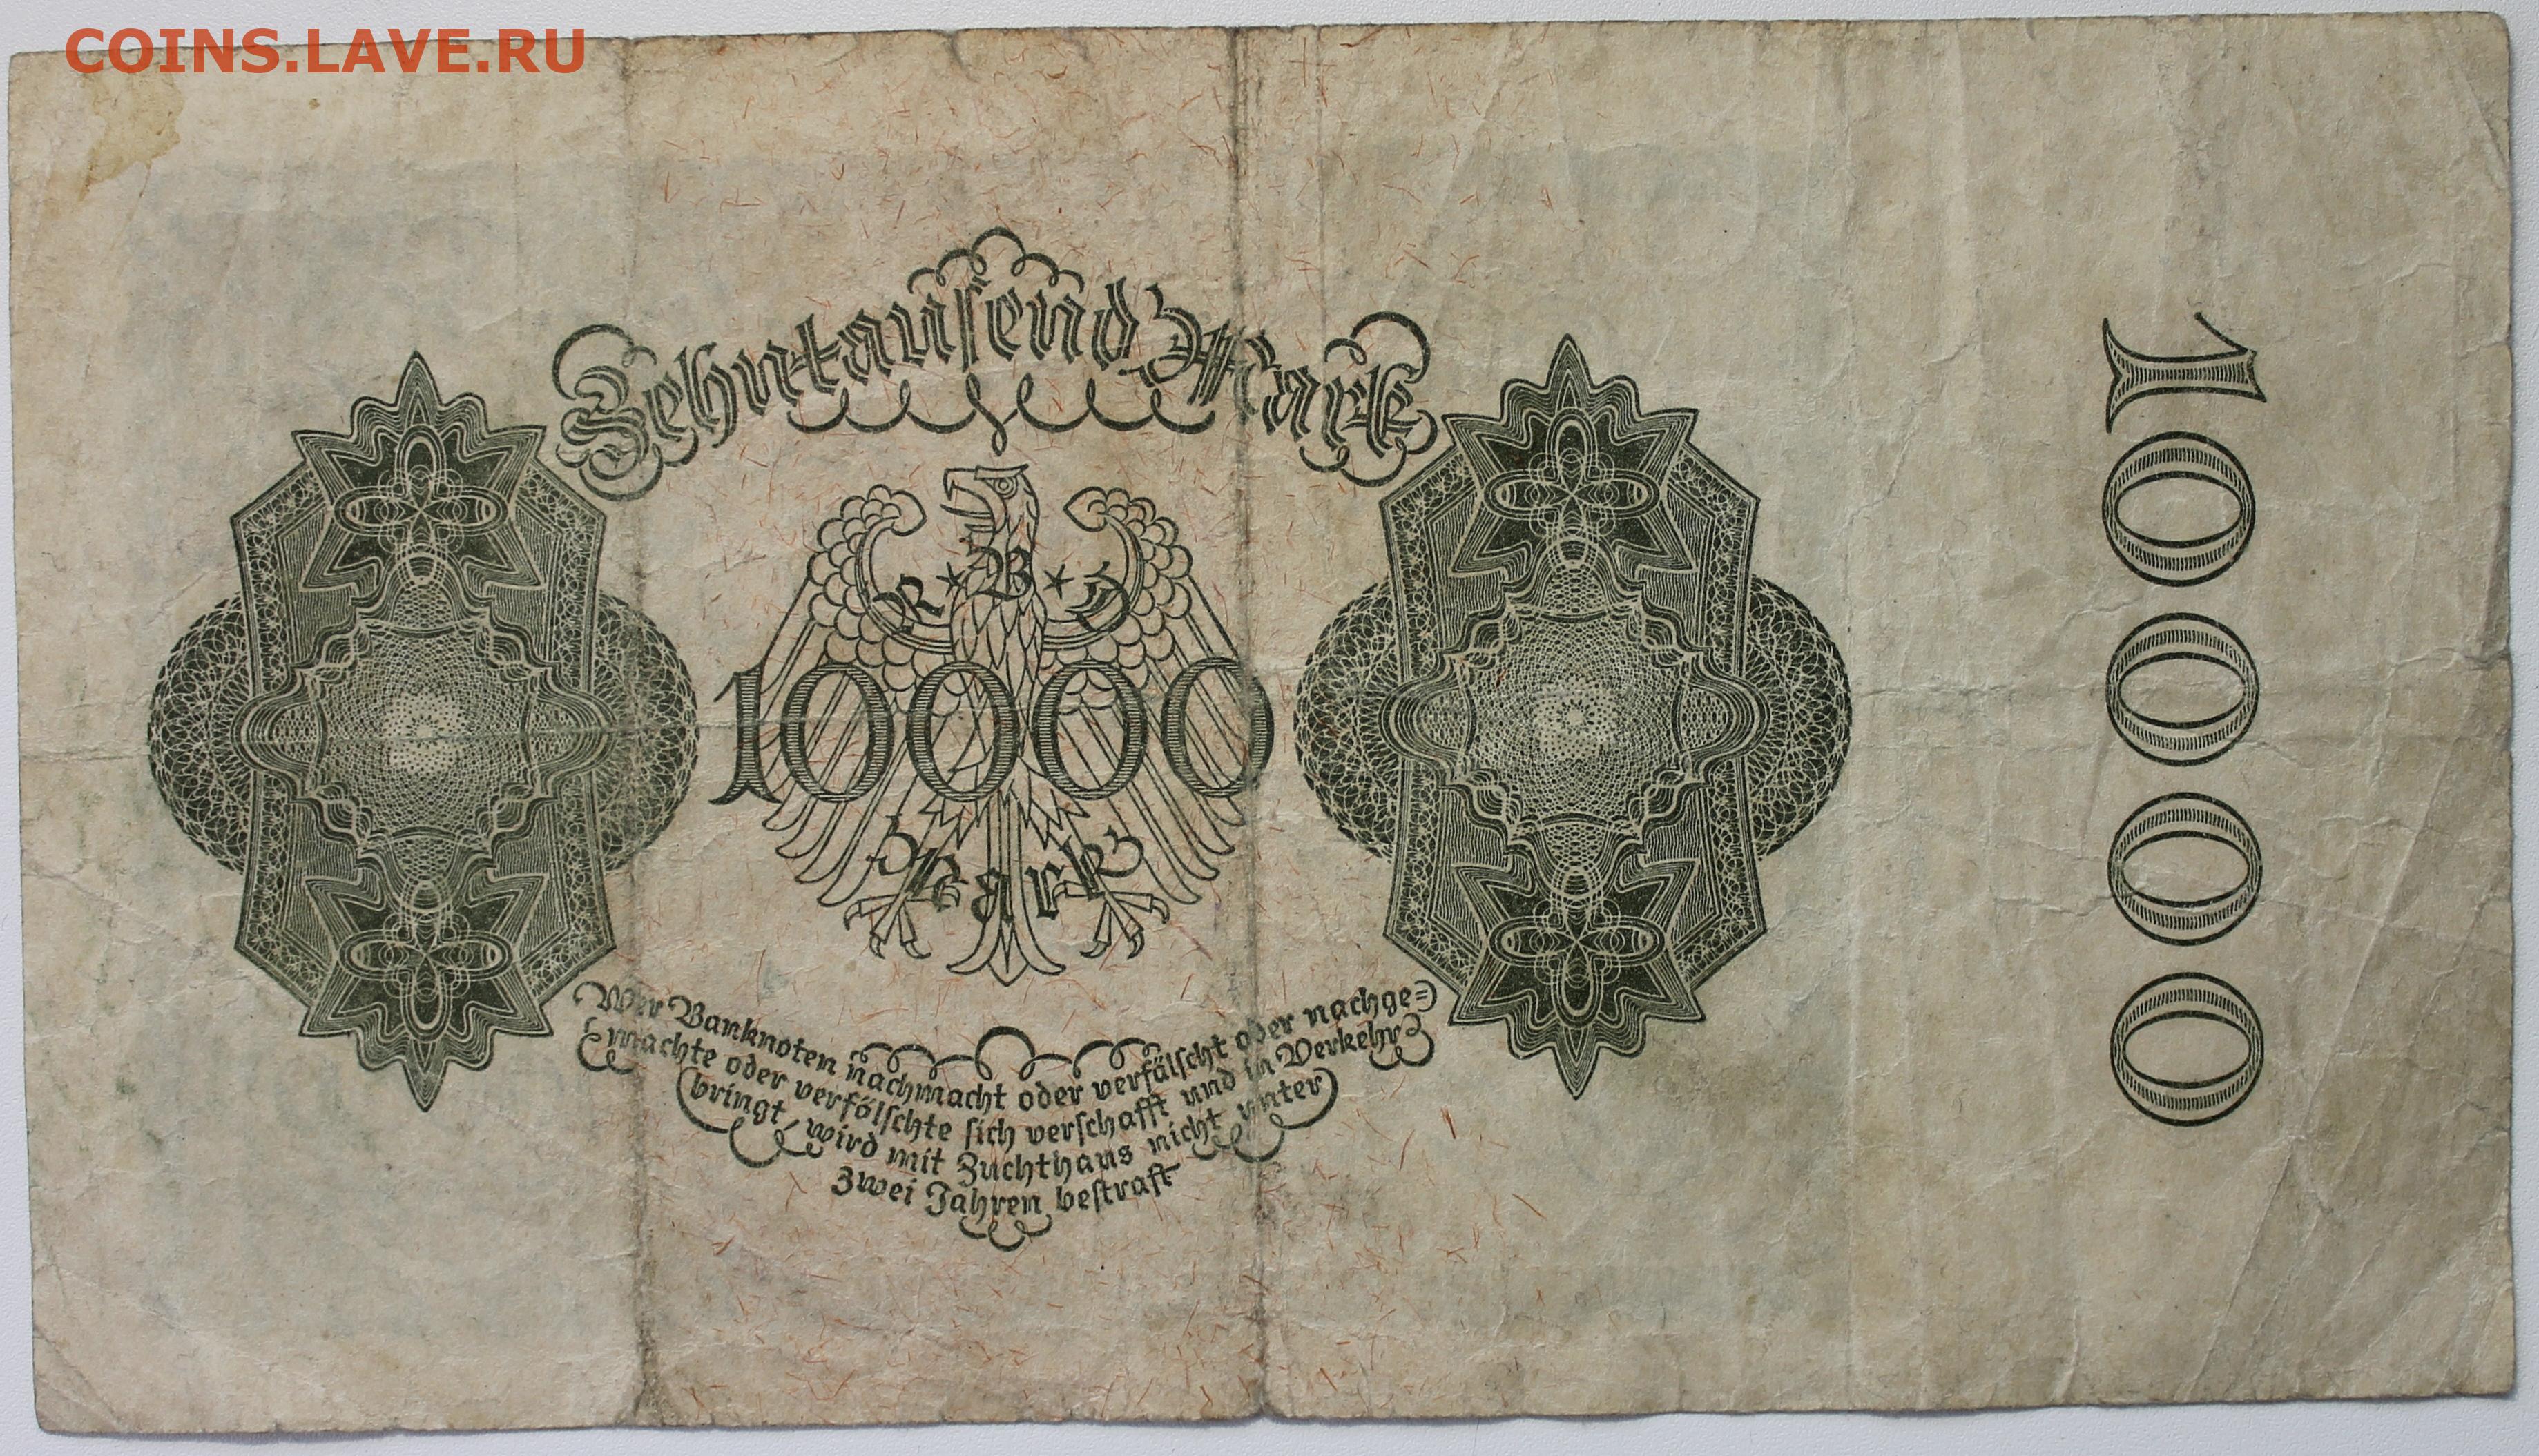 COINS.LAVE.RU
Zehntausend Mark
R*B*D
10000
Mark
10000
Wer Banknoten nachmacht oder verfälscht oder nachge=
machte oder verfälschte sich verschafft und in Verkehr
bringt, wird mit Zuchthaus nicht unter
zwei Jahren bestraft